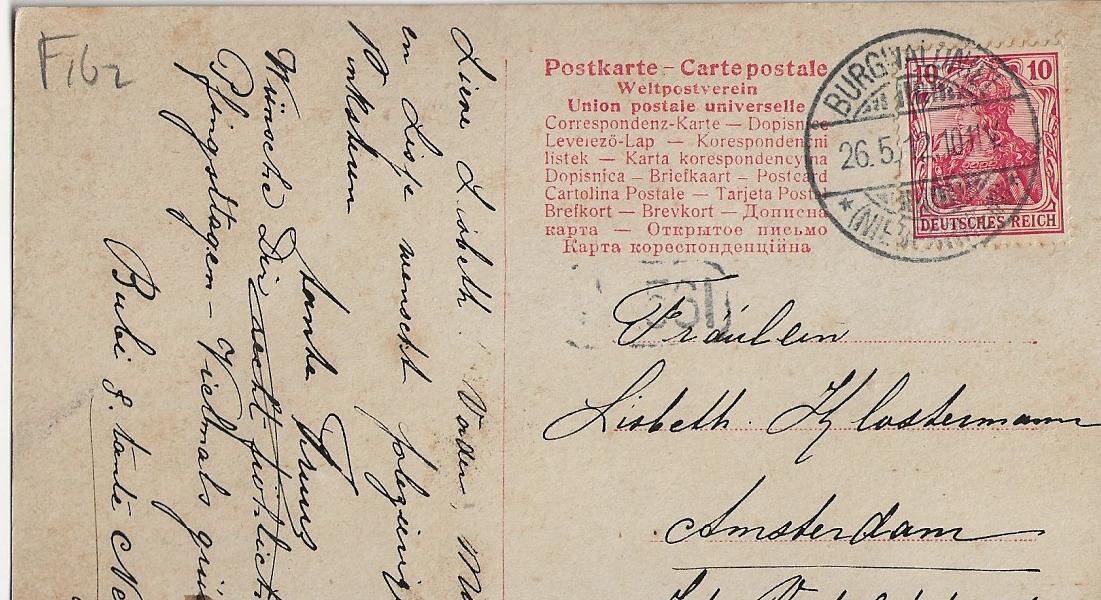 F,162
Lieve Lisbeth! Vader, Mo
en Lisje wenscht
Pinksteren
tante Truus
Wünsche Dir recht fröhliche
Pfingsttagen - Vielmals grü
Bubi & tante Ne
Postkarte – Carte postale
Weltpostverein
Union postale universelle
Correspondenz-Karte — Dopisnice
Levelező-Lap — Korespondenční
lístek — Karta korespondencyjna
Dopisnica — Briefkaart — Postcard
Cartolina Postale — Tarjeta Posta
Brefkort — Brevkort — Дописна
карта — Открытое письмо
Карта кореспонденційна
BURGWALDNIEL
26.5.12.10-11V
10 10
DEUTSCHES REICH
561
Fräulein
Lisbeth Klostermann
Amsterdam